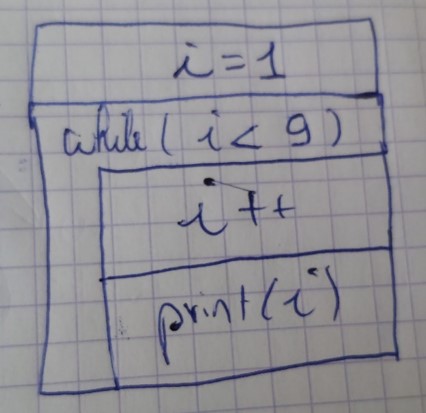 i = 1
while ( i < 9 )
i ++
print(i)